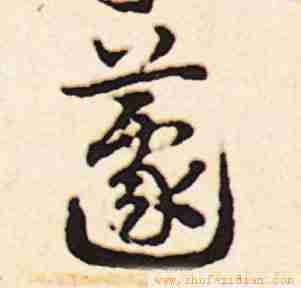 蘧
www.shufazidian.com